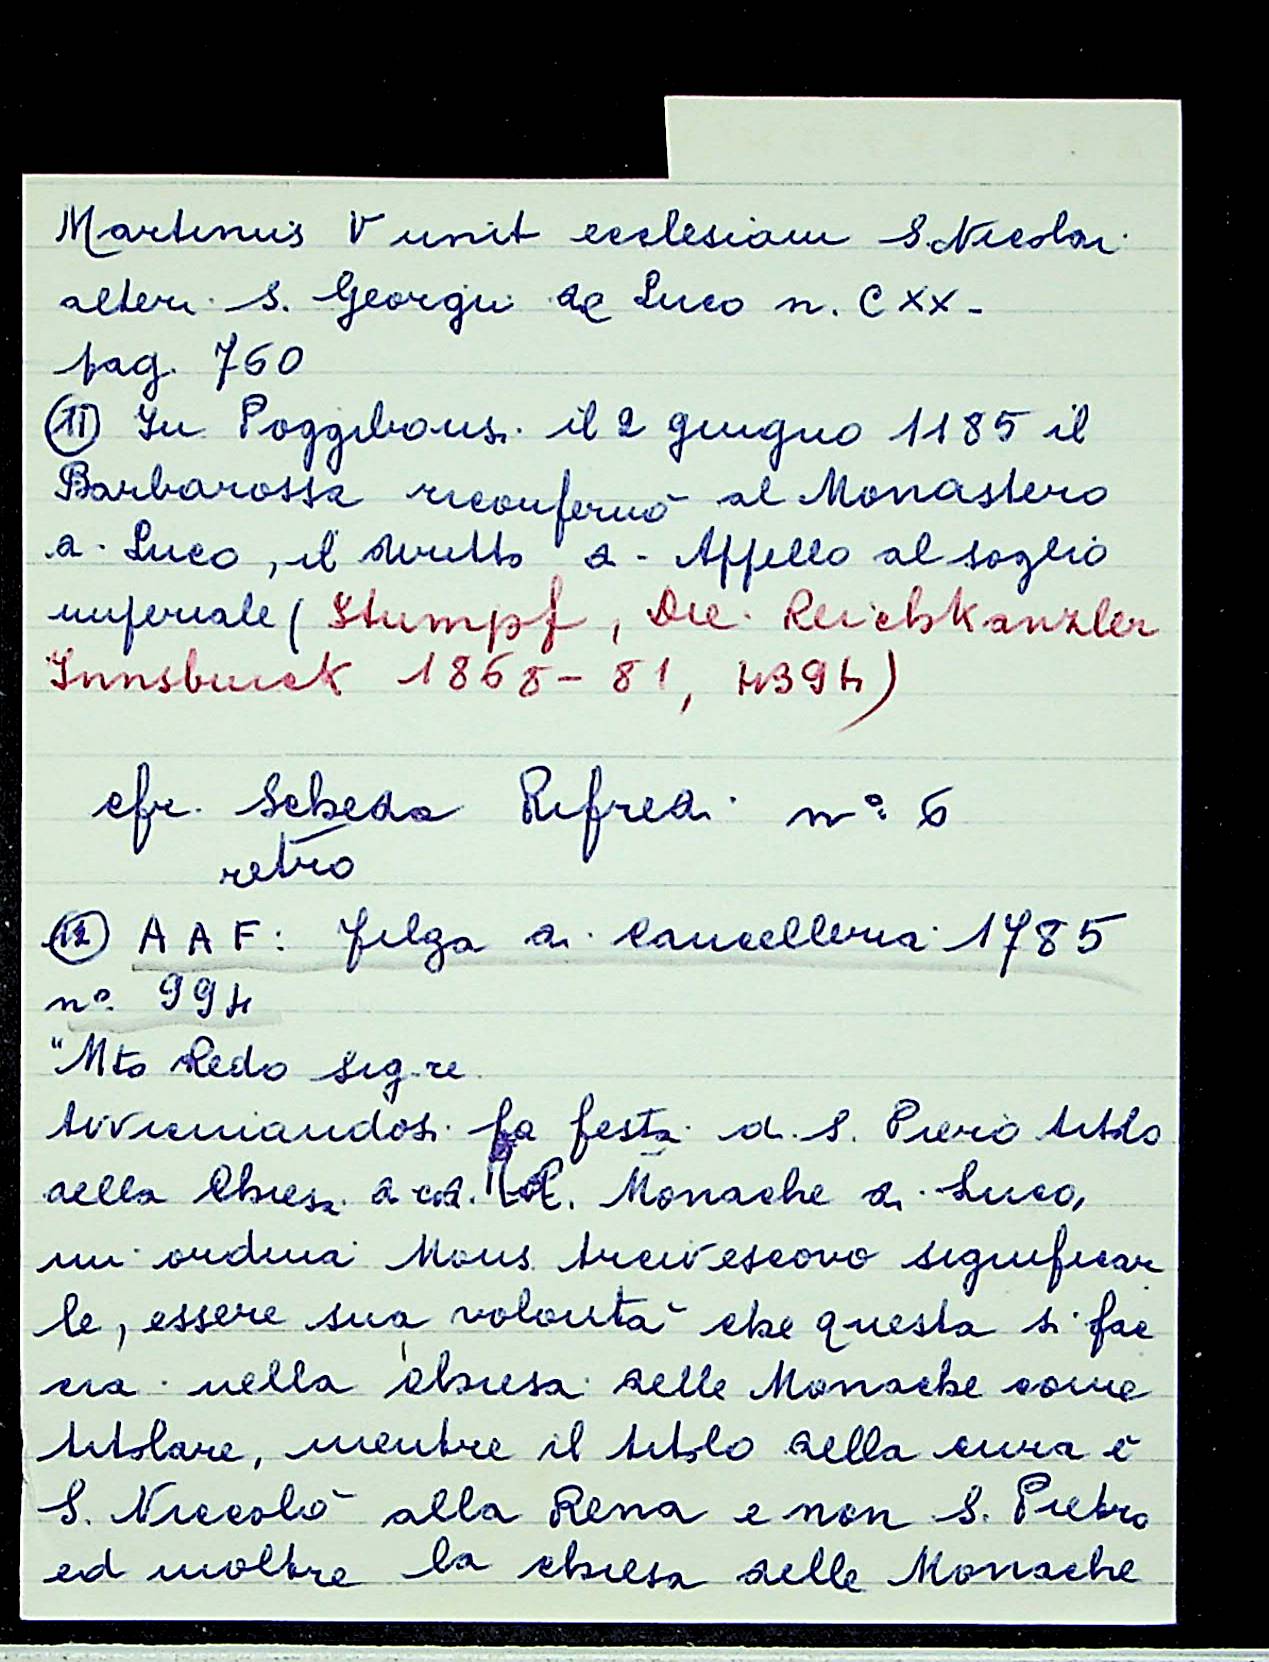 Martinus V unit ecclesiam S. Nicolai
alteri S. Georgii de Luco n. CXX -
pag. 760
(11) In Poggibonsi il 2 giugno 1185 il
Barbarossa riconfermò al Monastero
di Luco, il diritto di Appello al soglio
imperiale (Stumpf, Die Reichkanzler
Innsbruck 1868-81, 4394)
cfr. Scheda Rifredi n° 6
retro
(12) AAF: Filza di Cancelleria 1785
n° 994
"Mto Redo Sig.re
Avvicinandosi la festa di S. Piero titolo
della Chiesa di cod. RR. Monache di Luco,
mi ordina Mons Arcivescovo significar
le, essere sua volontà che questa si fac
cia nella chiesa delle Monache come
titolare, mentre il titolo della cura è
S. Niccolò alla Rena e non S. Pietro
ed inoltre la chiesa delle Monache